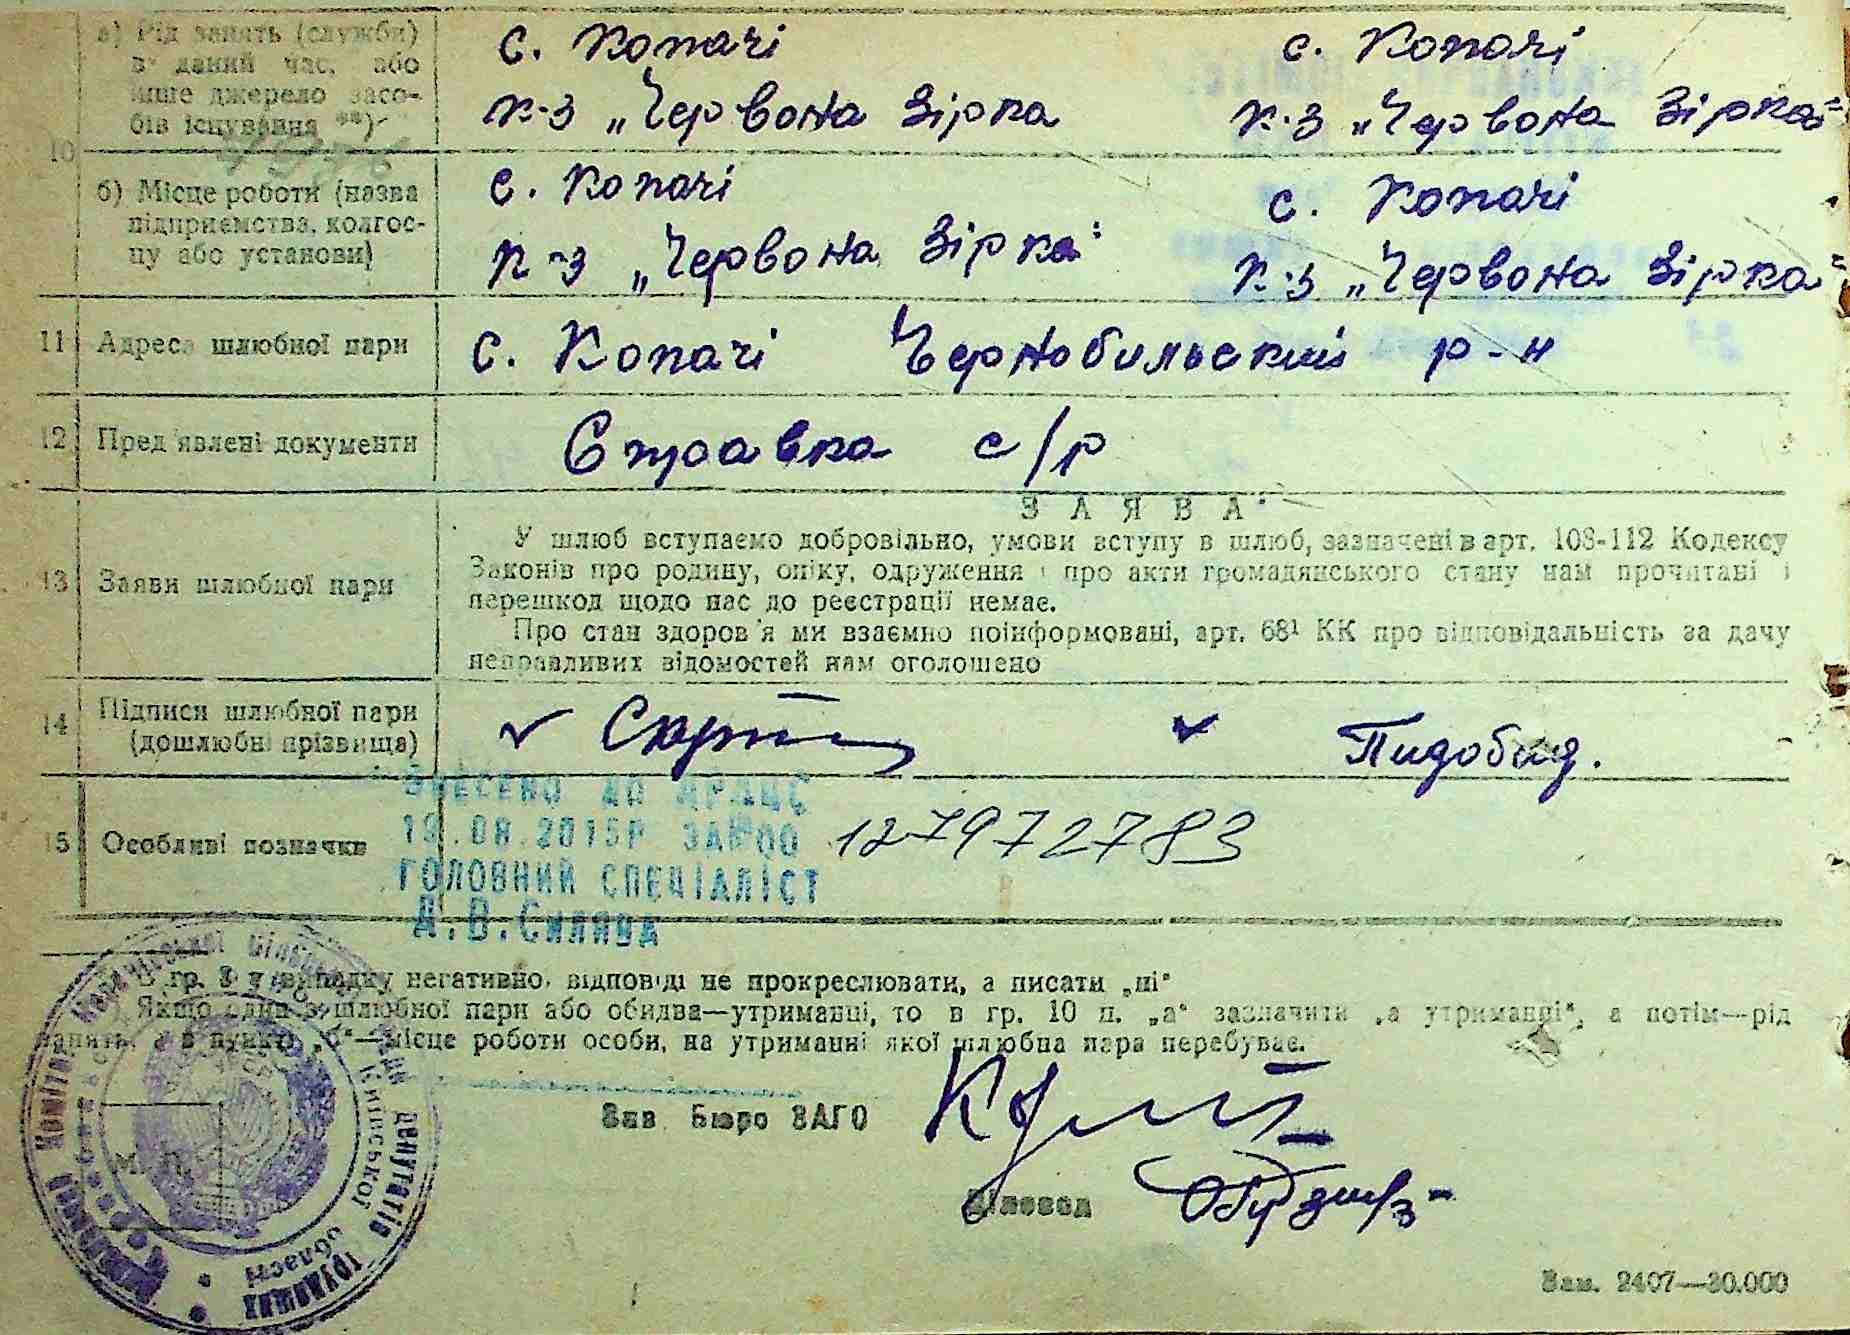 10
а) Рід занять (служби) в даний час, або інше джерело засобів існування **)
с. Копачі
с. Копачі
к-з „Червона Зірка
к-з „Червона Зірка"
б) Місце роботи (назва підприємства, колгоспу або установи)
с. Копачі
с. Копачі
к-з „Червона Зірка"
к-з „Червона Зірка"
11 Адреса шлюбної пари
с. Копачі Чернобильский р-н
12 Пред'явлені документи
Справка с/р
13 Заяви шлюбної пари
ЗАЯВА
У шлюб вступаємо добровільно, умови вступу в шлюб, зазначені в арт. 108-112 Кодексу
Законів про родину, опіку, одруження і про акти громадянського стану нам прочитані і
перешкод щодо нас до реєстрації немає.
Про стан здоров'я ми взаємно поінформовані, арт. 68¹ КК про відповідальність за дачу
неправливих відомостей нам оголошено
14 Підписи шлюбної пари
(дошлюбні прізвища)
Пидобид.
15 Особливі позначки
ВНЕСЕНО ДО ДРАЦС
19.08.2015Р ЗА №00 127972783
ГОЛОВНИЙ СПЕЦІАЛІСТ
гр. 8 у випадку негативно, відповіді не прокреслювати, а писати „ні"
Якщо один з шлюбної пари або обидва—утриманці, то в гр. 10 п. „а" зазначити „а утриманці", а потім—рід
занять, а в пункті „б"—місце роботи особи, на утриманні якої шлюбна пара перебуває.
Зав Бюро ЗАГС
Діловод
М. П.
депутатів трудящих
Київської області
Зам. 2407—30.000